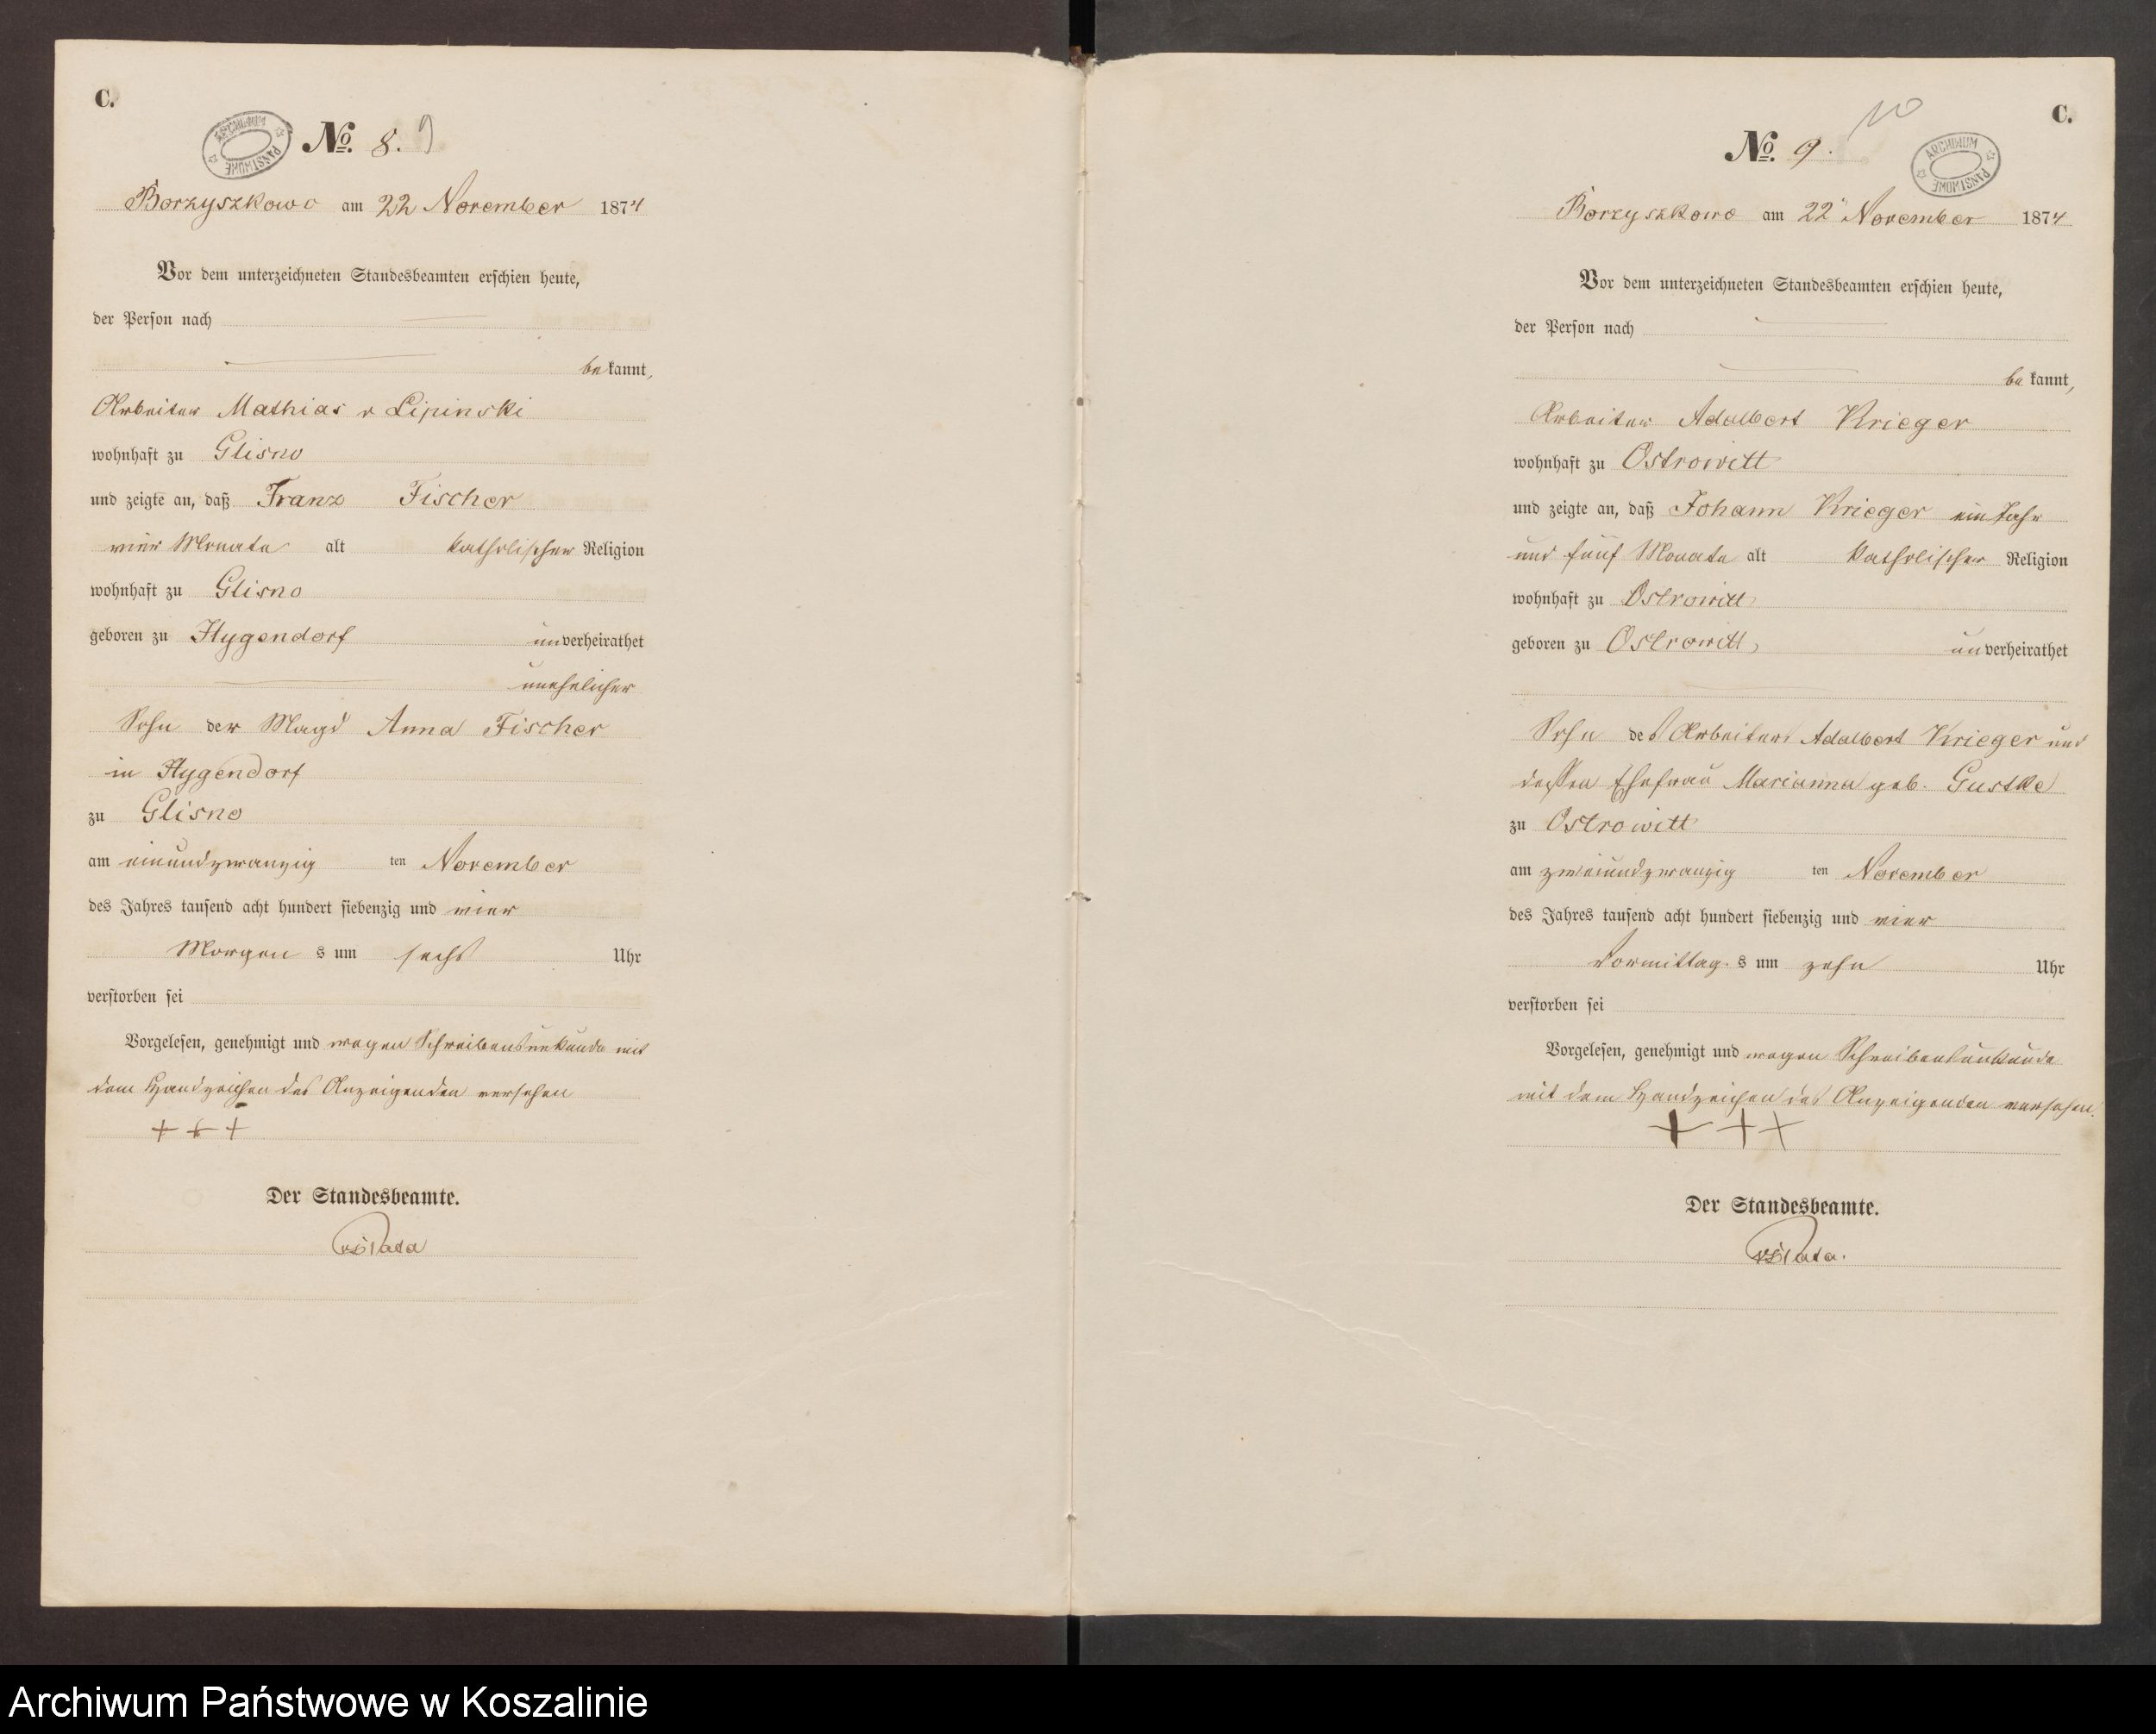 C.
ARCHIWUM PAŃSTWOWE
No. 8. 9
Borzyszkowo am 22 November 1874
Vor dem unterzeichneten Standesbeamten erschien heute,
der Person nach
bekannt,
Arbeiter Mathias v Lipinski
wohnhaft zu Glisno
und zeigte an, daß Franz Fischer
vier Monate alt katholischer Religion
wohnhaft zu Glisno
geboren zu Hygendorf unverheirathet
unehelicher
Sohn der Magd Anna Fischer
in Hygendorf
zu Glisno
am einundzwanzig ten November
des Jahres tausend acht hundert siebenzig und vier
Morgen s um sechs Uhr
verstorben sei
Vorgelesen, genehmigt und wegen Schreibensunkunde mit
dem Handzeichen des Anzeigenden versehen
+ + +
Der Standesbeamte.
C.
10
No. 9.
ARCHIWUM PAŃSTWOWE
Borzyszkowo am 22 November 1874
Vor dem unterzeichneten Standesbeamten erschien heute,
der Person nach
bekannt,
Arbeiter Adalbert Krieger
wohnhaft zu Ostrowitt
und zeigte an, daß Johann Krieger ein Jahr
und fünf Monate alt katholischer Religion
wohnhaft zu Ostrowitt
geboren zu Ostrowitt, unverheirathet
Sohn des Arbeiters Adalbert Krieger und
dessen Ehefrau Marianna geb. Gustke
zu Ostrowitt
am zweiundzwanzig ten November
des Jahres tausend acht hundert siebenzig und vier
Vormittag s um zehn Uhr
verstorben sei
Vorgelesen, genehmigt und wegen Schreibensunkunde
mit dem Handzeichen des Anzeigenden versehen.
+ + +
Der Standesbeamte.
Archiwum Państwowe w Koszalinie